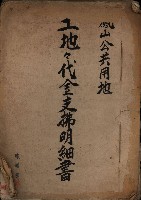 鳳山公共用地
土地々代金支拂明細書